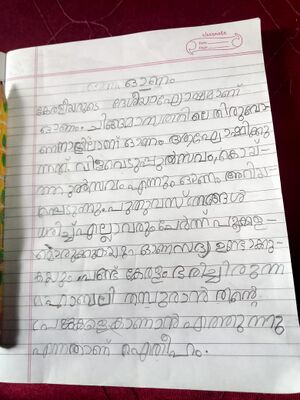 classmate
Date
Page
ഓണം
കേരളീയരുടെ ദേശീയാഘോഷമാണ്
ഓണം. ചിങ്ങമാസത്തിലെ തിരുവോ-
ണനാളിലാണ് ഓണം ആഘോഷിക്കു
ന്നത് വിളവെടുപ്പുൽസവം, കൊയ്-
ത്തുൽസവം എന്നും ഓണം അറിയ-
പ്പെടുന്നു. പുതുവസ്ത്രങ്ങൾ
ധരിച്ച് എല്ലാവരും ചേർന്ന് പൂക്കള-
മൊരുക്കുകയും ഓണസദ്യ ഉണ്ടാക്കു-
കയും പണ്ട് കേരളം ഭരിച്ചിരുന്ന
മഹാബലി തമ്പുരാൻ തന്റെ
പ്രജകളെ കാണാൻ എത്തുന്നു
എന്നതാണ് ഐതീഹം.